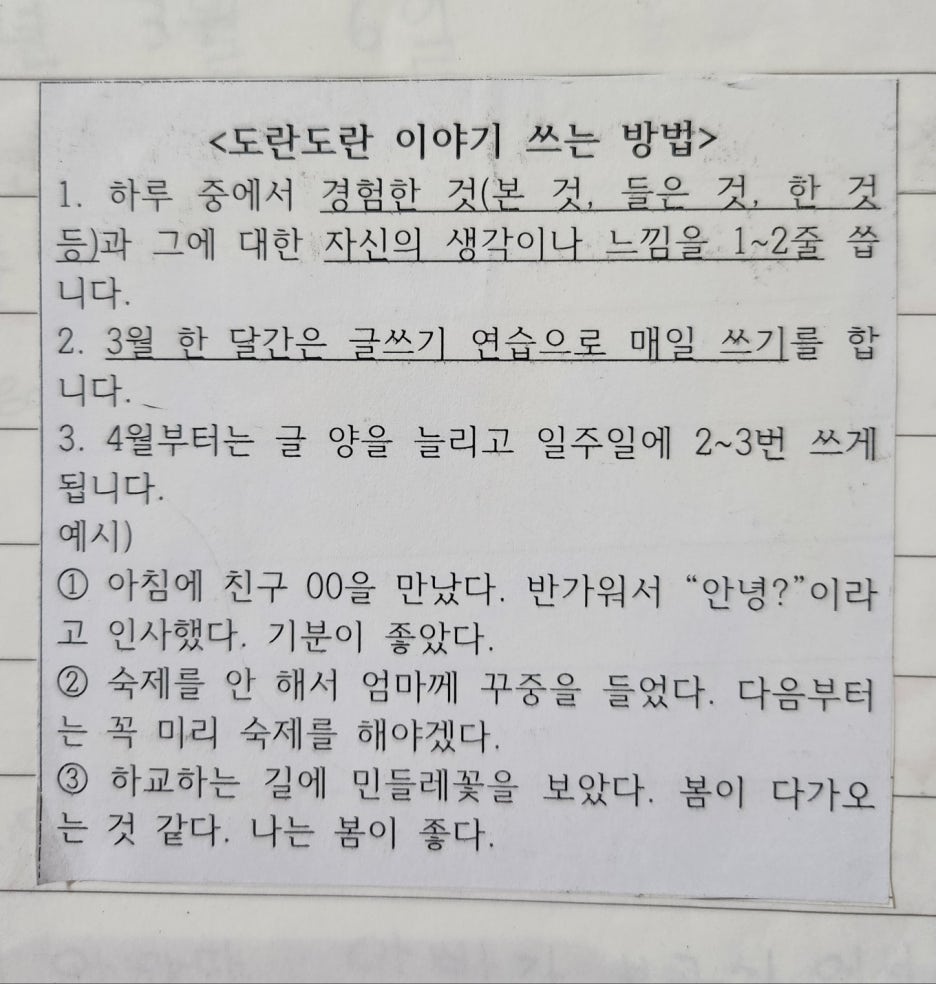 <도란도란 이야기 쓰는 방법>
1. 하루 중에서 경험한 것(본 것, 들은 것, 한 것
등)과 그에 대한 자신의 생각이나 느낌을 1~2줄 씁
니다.
2. 3월 한 달간은 글쓰기 연습으로 매일 쓰기를 합
니다.
3. 4월부터는 글 양을 늘리고 일주일에 2~3번 쓰게
됩니다.
예시)
① 아침에 친구 00을 만났다. 반가워서 “안녕?”이라
고 인사했다. 기분이 좋았다.
② 숙제를 안 해서 엄마께 꾸중을 들었다. 다음부터
는 꼭 미리 숙제를 해야겠다.
③ 하교하는 길에 민들레꽃을 보았다. 봄이 다가오
는 것 같다. 나는 봄이 좋다.